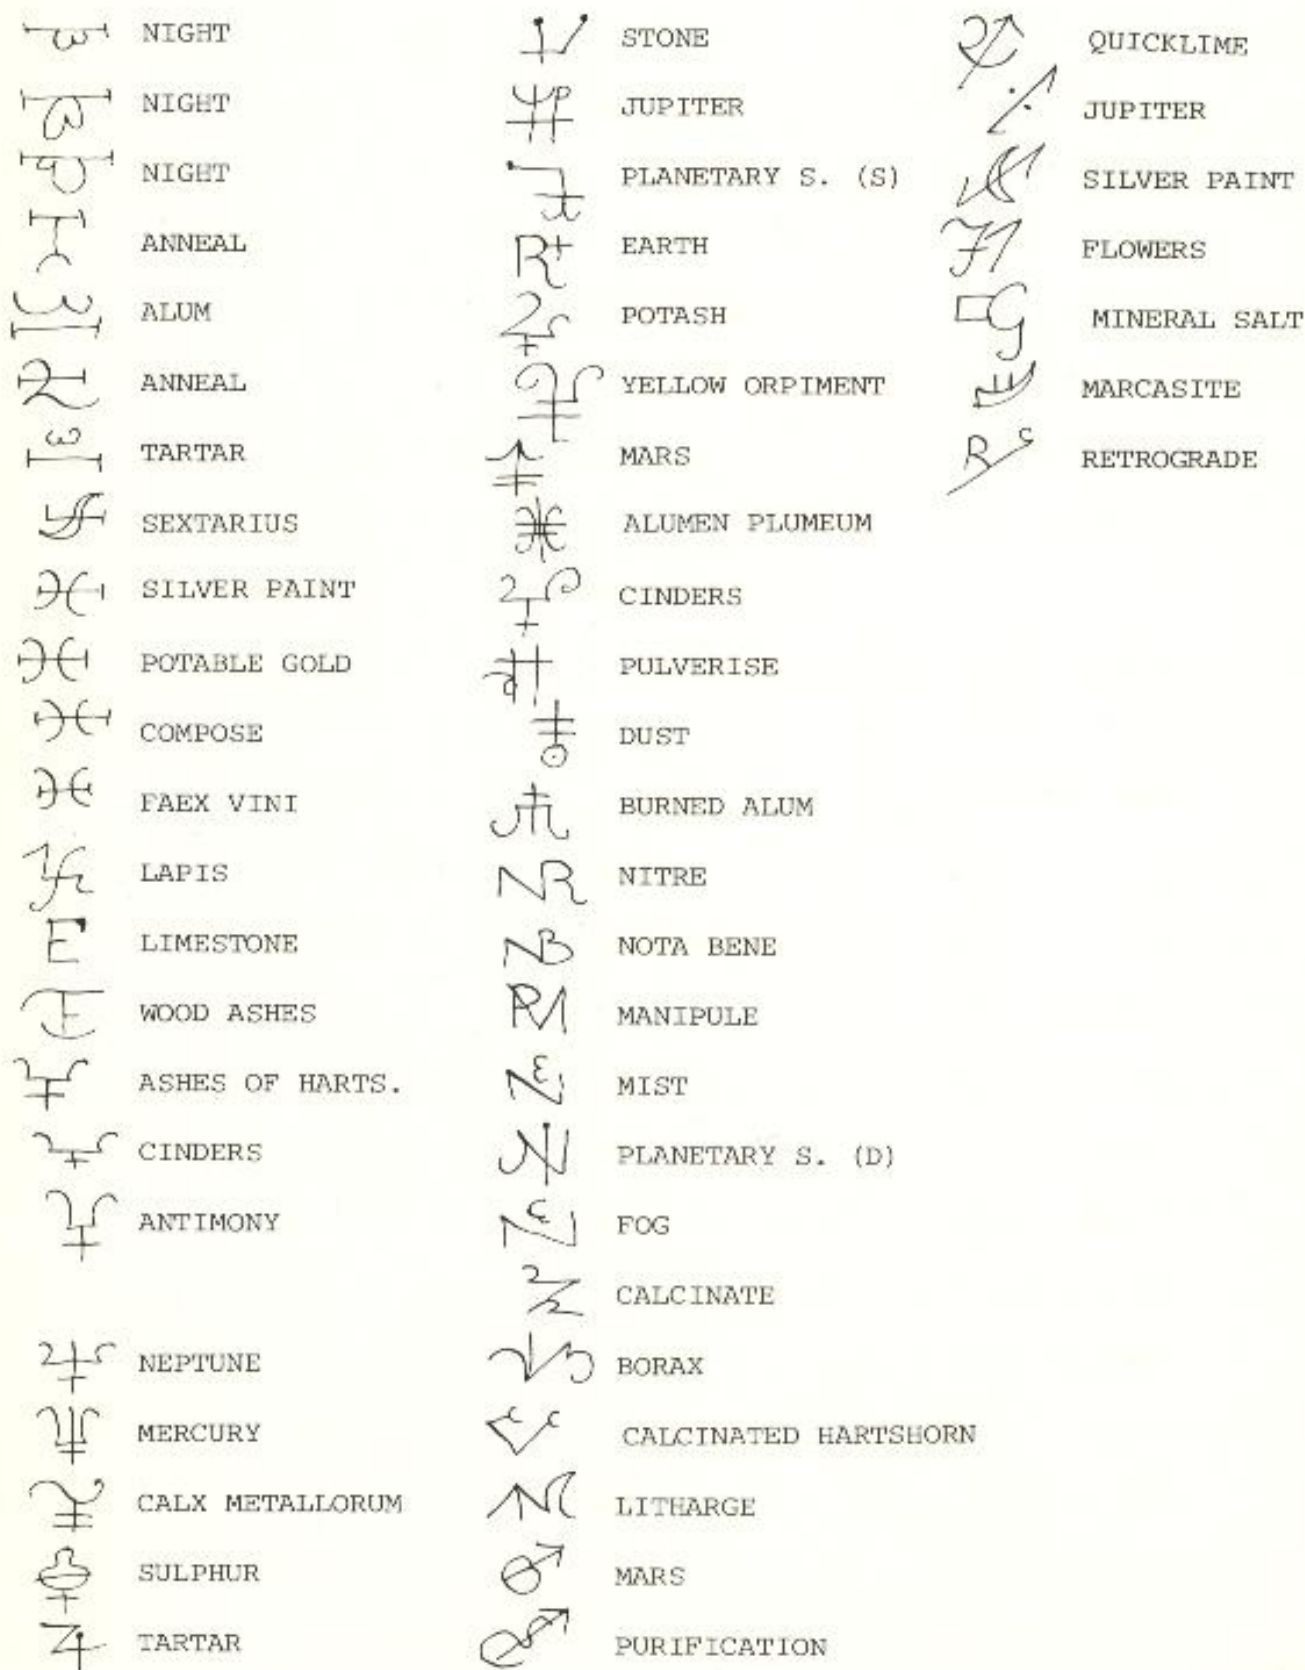 NIGHT
NIGHT
NIGHT
ANNEAL
ALUM
ANNEAL
TARTAR
SEXTARIUS
SILVER PAINT
POTABLE GOLD
COMPOSE
FAEX VINI
LAPIS
LIMESTONE
WOOD ASHES
ASHES OF HARTS.
CINDERS
ANTIMONY
NEPTUNE
MERCURY
CALX METALLORUM
SULPHUR
TARTAR
STONE
JUPITER
PLANETARY S. (S)
EARTH
POTASH
YELLOW ORPIMENT
MARS
ALUMEN PLUMEUM
CINDERS
PULVERISE
DUST
BURNED ALUM
NITRE
NOTA BENE
MANIPULE
MIST
PLANETARY S. (D)
FOG
CALCINATE
BORAX
CALCINATED HARTSHORN
LITHARGE
MARS
PURIFICATION
QUICKLIME
JUPITER
SILVER PAINT
FLOWERS
MINERAL SALT
MARCASITE
RETROGRADE